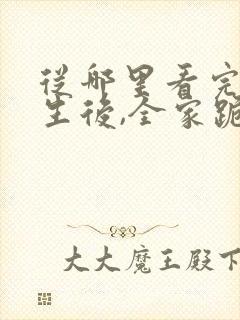 從哪里看完
生後,全家跪
大大魔王殿下